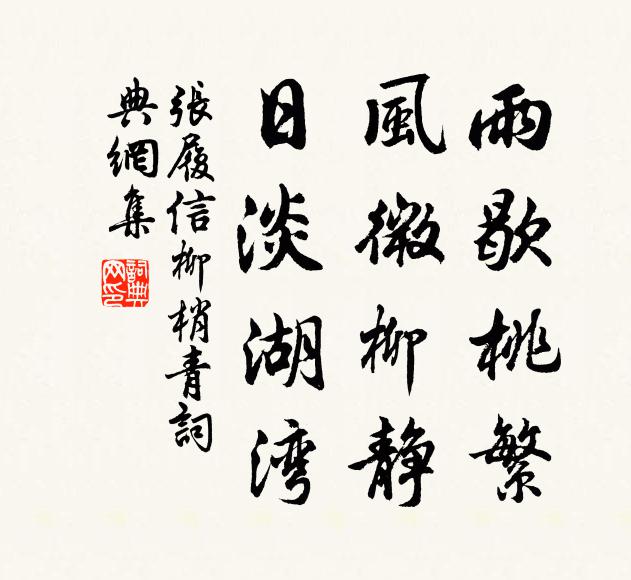 雨歇桃繁
風微柳静
日淡湖湾
張履信柳梢青詞
典網集
詞典
网印